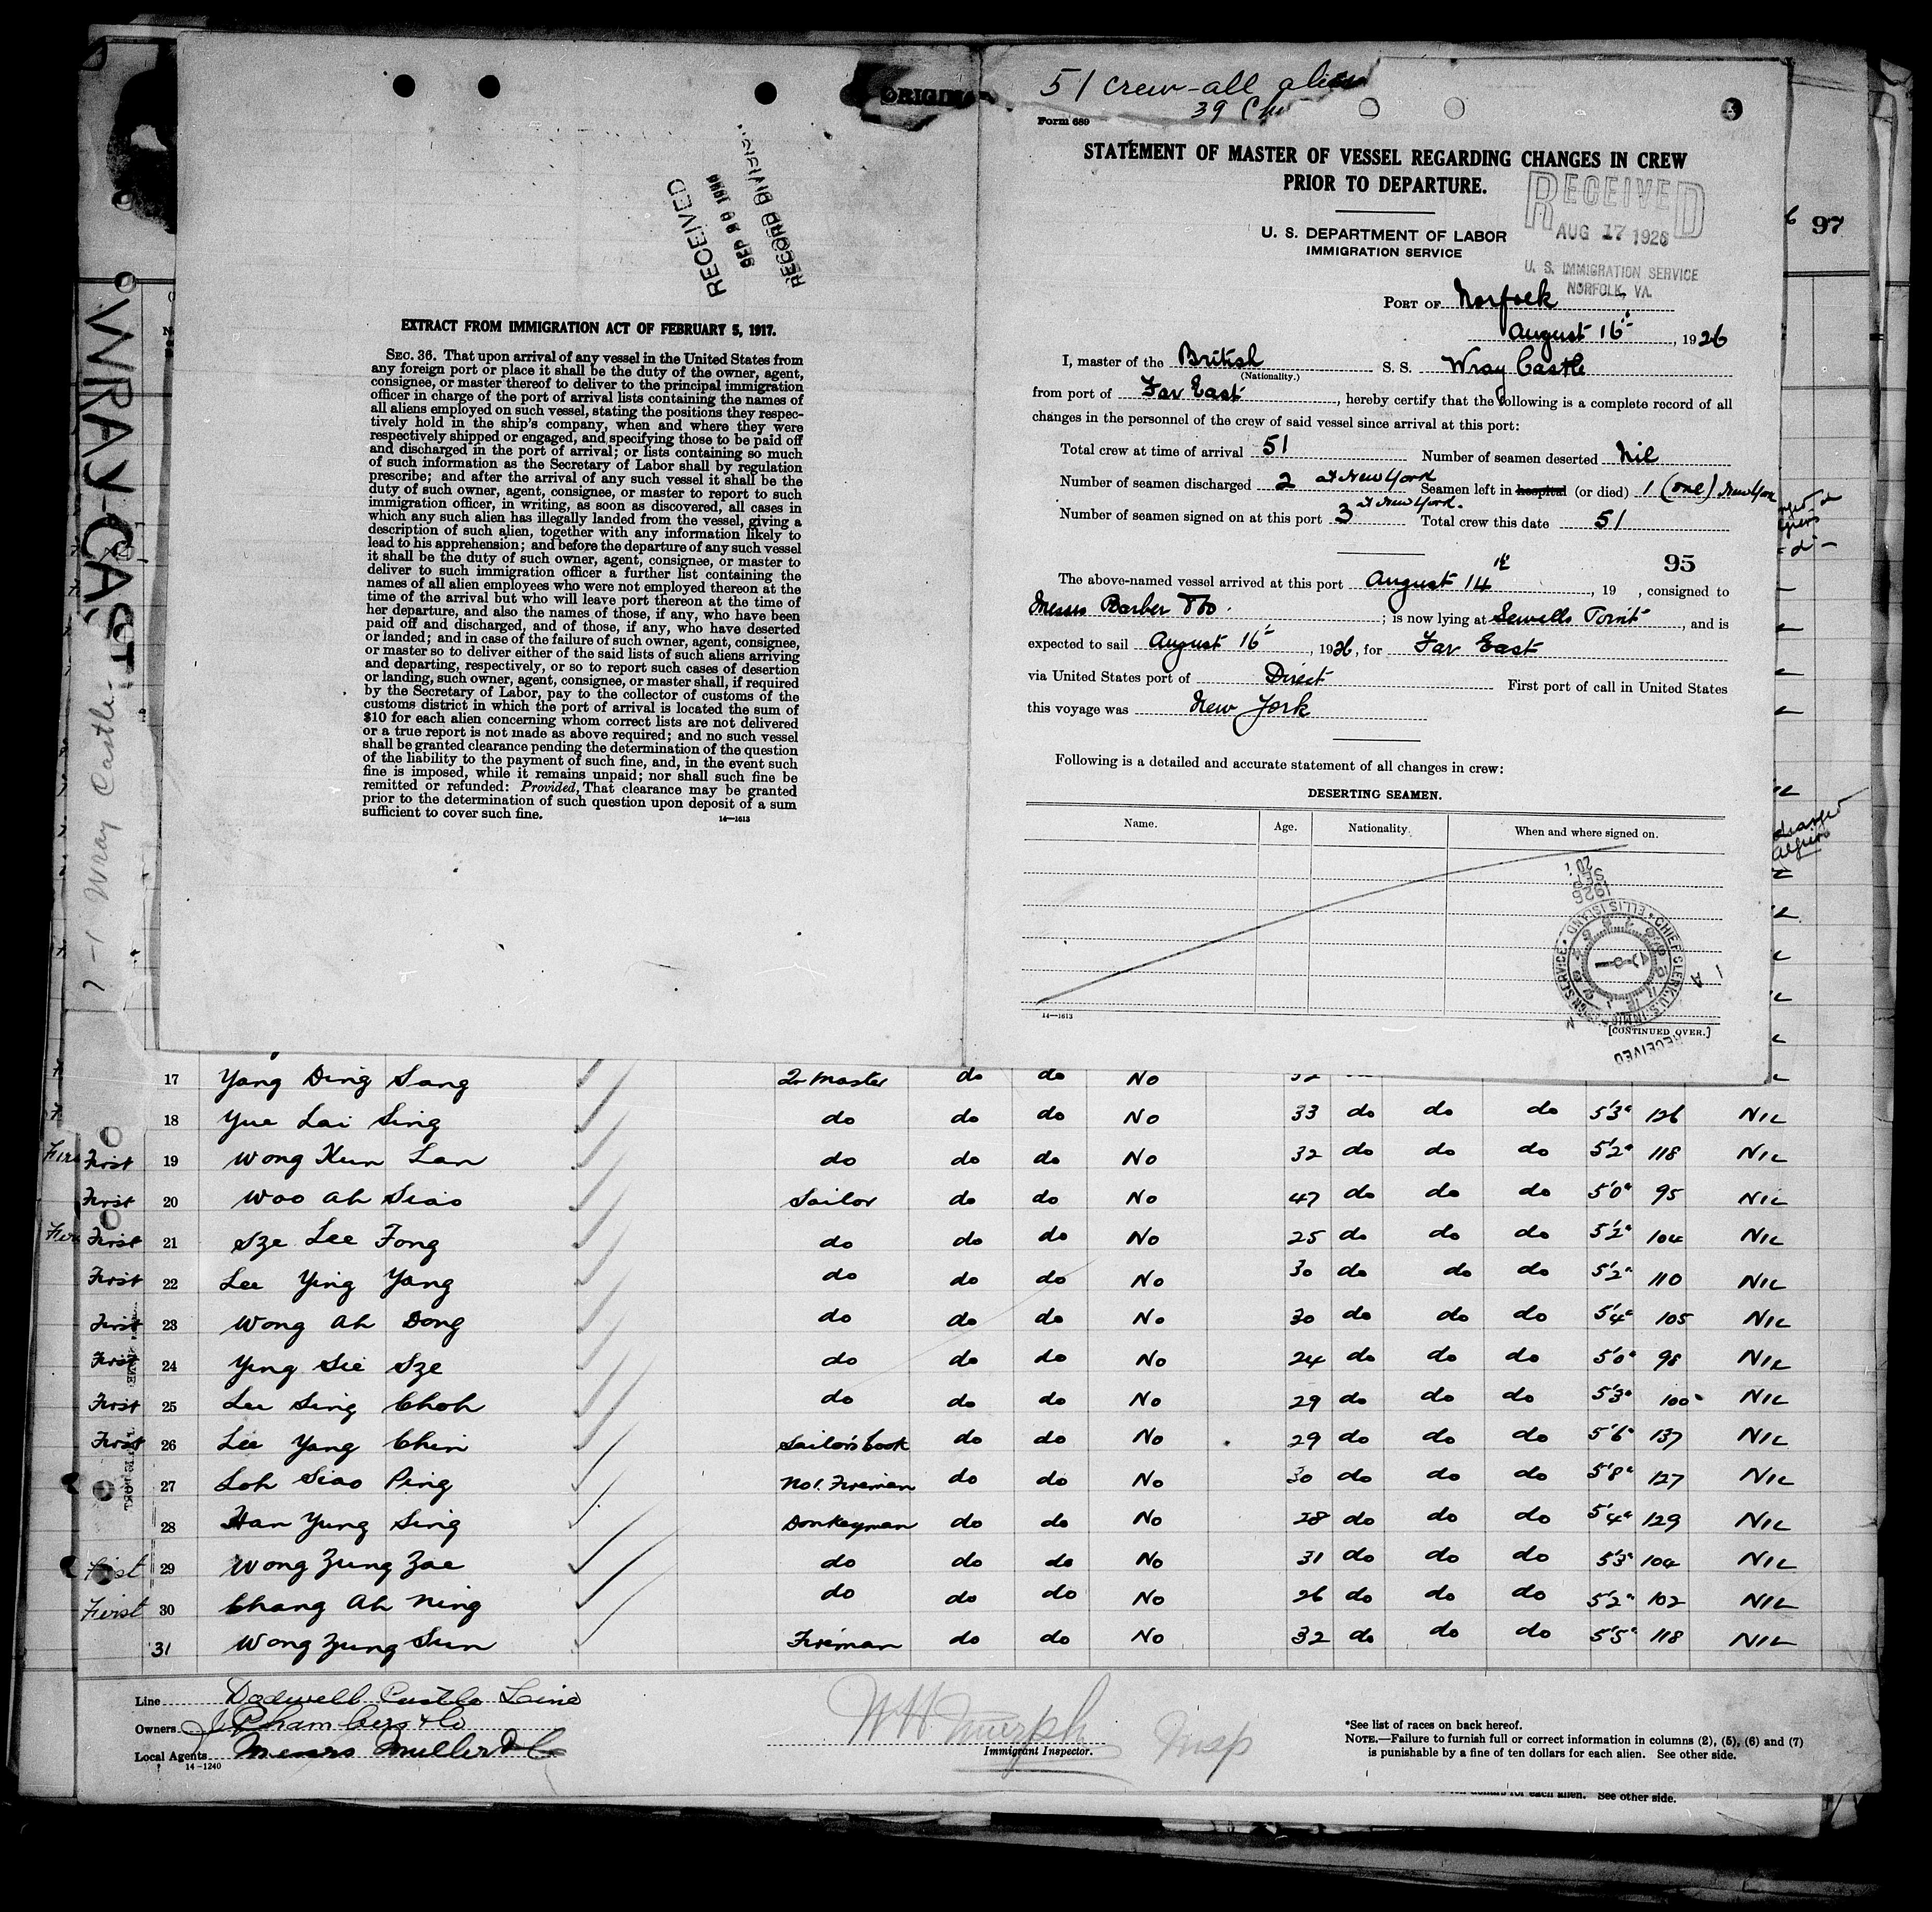 WRAY-CAST
Wray Castle
51 crew-all alien
39 Chi
ORIGINA
Form 689
STATEMENT OF MASTER OF VESSEL REGARDING CHANGES IN CREW
PRIOR TO DEPARTURE.
RECEIVED
AUG 17 1926
U. S. IMMIGRATION SERVICE
NORFOLK, VA.
97
U. S. DEPARTMENT OF LABOR
IMMIGRATION SERVICE
PORT OF Norfolk
August 16th, 1926
I, master of the British S. S. Wray Castle
(Nationality.)
from port of Far East, hereby certify that the following is a complete record of all
changes in the personnel of the crew of said vessel since arrival at this port:
Total crew at time of arrival 51 Number of seamen deserted Nil
Number of seamen discharged 2 at New York Seamen left in hospital (or died) 1 (one) New York
Number of seamen signed on at this port 3 at New York. Total crew this date 51
95
The above-named vessel arrived at this port August 14th, 19 , consigned to
Messrs Barber & Co. ; is now lying at Sewells Point, and is
expected to sail August 16th, 1926, for Far East
via United States port of Direct First port of call in United States
this voyage was New York
Following is a detailed and accurate statement of all changes in crew:
DESERTING SEAMEN.
Name. Age. Nationality. When and where signed on.
1926
SEP 20
CHIEF CLERK U.S. IMMIGRATION SERVICE ELLIS ISLAND
RECEIVED
14—1613
[CONTINUED OVER.]
RECEIVED
SEP 20 1926
RECORD DIVISION
EXTRACT FROM IMMIGRATION ACT OF FEBRUARY 5, 1917.
SEC. 36. That upon arrival of any vessel in the United States from
any foreign port or place it shall be the duty of the owner, agent,
consignee, or master thereof to deliver to the principal immigration
officer in charge of the port of arrival lists containing the names of
all aliens employed on such vessel, stating the positions they respec-
tively hold in the ship's company, when and where they were
respectively shipped or engaged, and specifying those to be paid off
and discharged in the port of arrival; or lists containing so much
of such information as the Secretary of Labor shall by regulation
prescribe; and after the arrival of any such vessel it shall be the
duty of such owner, agent, consignee, or master to report to such
immigration officer, in writing, as soon as discovered, all cases in
which any such alien has illegally landed from the vessel, giving a
description of such alien, together with any information likely to
lead to his apprehension; and before the departure of any such vessel
it shall be the duty of such owner, agent, consignee, or master to
deliver to such immigration officer a further list containing the
names of all alien employees who were not employed thereon at the
time of the arrival but who will leave port thereon at the time of
her departure, and also the names of those, if any, who have been
paid off and discharged, and of those, if any, who have deserted
or landed; and in case of the failure of such owner, agent, consignee,
or master so to deliver either of the said lists of such aliens arriving
and departing, respectively, or so to report such cases of desertion
or landing, such owner, agent, consignee, or master shall, if required
by the Secretary of Labor, pay to the collector of customs of the
customs district in which the port of arrival is located the sum of
$10 for each alien concerning whom correct lists are not delivered
or a true report is not made as above required; and no such vessel
shall be granted clearance pending the determination of the question
of the liability to the payment of such fine, and, in the event such
fine is imposed, while it remains unpaid; nor shall such fine be
remitted or refunded: Provided, That clearance may be granted
prior to the determination of such question upon deposit of a sum
sufficient to cover such fine.
14—1613
17 Yang Ding Sang 2r Master do do No
18 Yue Lai Sing do do do No 33 do do do 5'3" 126 NIL
First 19 Wong Kun Lan do do do No 32 do do do 5'2" 118 NIL
First 20 Woo Ah Siao Sailor do do No 47 do do do 5'0" 95 NIL
First 21 Sze Lee Fong do do do No 25 do do do 5'2" 104 NIL
First 22 Lee Ying Yang do do do No 30 do do do 5'2" 110 NIL
First 23 Wong Ah Dong do do do No 30 do do do 5'4" 105 NIL
First 24 Ying Sie Sze do do do No 24 do do do 5'0" 98 NIL
First 25 Lee Sing Choh do do do No 29 do do do 5'3" 100 NIL
First 26 Lee Yang Chin Sailors Cook do do No 29 do do do 5'6" 137 NIL
27 Loh Siao Ping No1. Fireman do do No 30 do do do 5'8" 127 NIL
28 Han Yung Sing Donkeyman do do No 28 do do do 5'4" 129 NIL
First 29 Wong Zung Zae do do do No 31 do do do 5'3" 104 NIL
First 30 Chang Ah Ning do do do No 26 do do do 5'2" 102 NIL
31 Wong Zung Sun Fireman do do No 32 do do do 5'5" 118 NIL
Line Dodwell Castle Line
Owners J Chambers & Co
Local Agents Messrs Muller & Co
14-1240
W H Murph Insp
Immigrant Inspector.
*See list of races on back hereof.
NOTE.—Failure to furnish full or correct information in columns (2), (5), (6) and (7)
is punishable by a fine of ten dollars for each alien. See other side.
See other side.